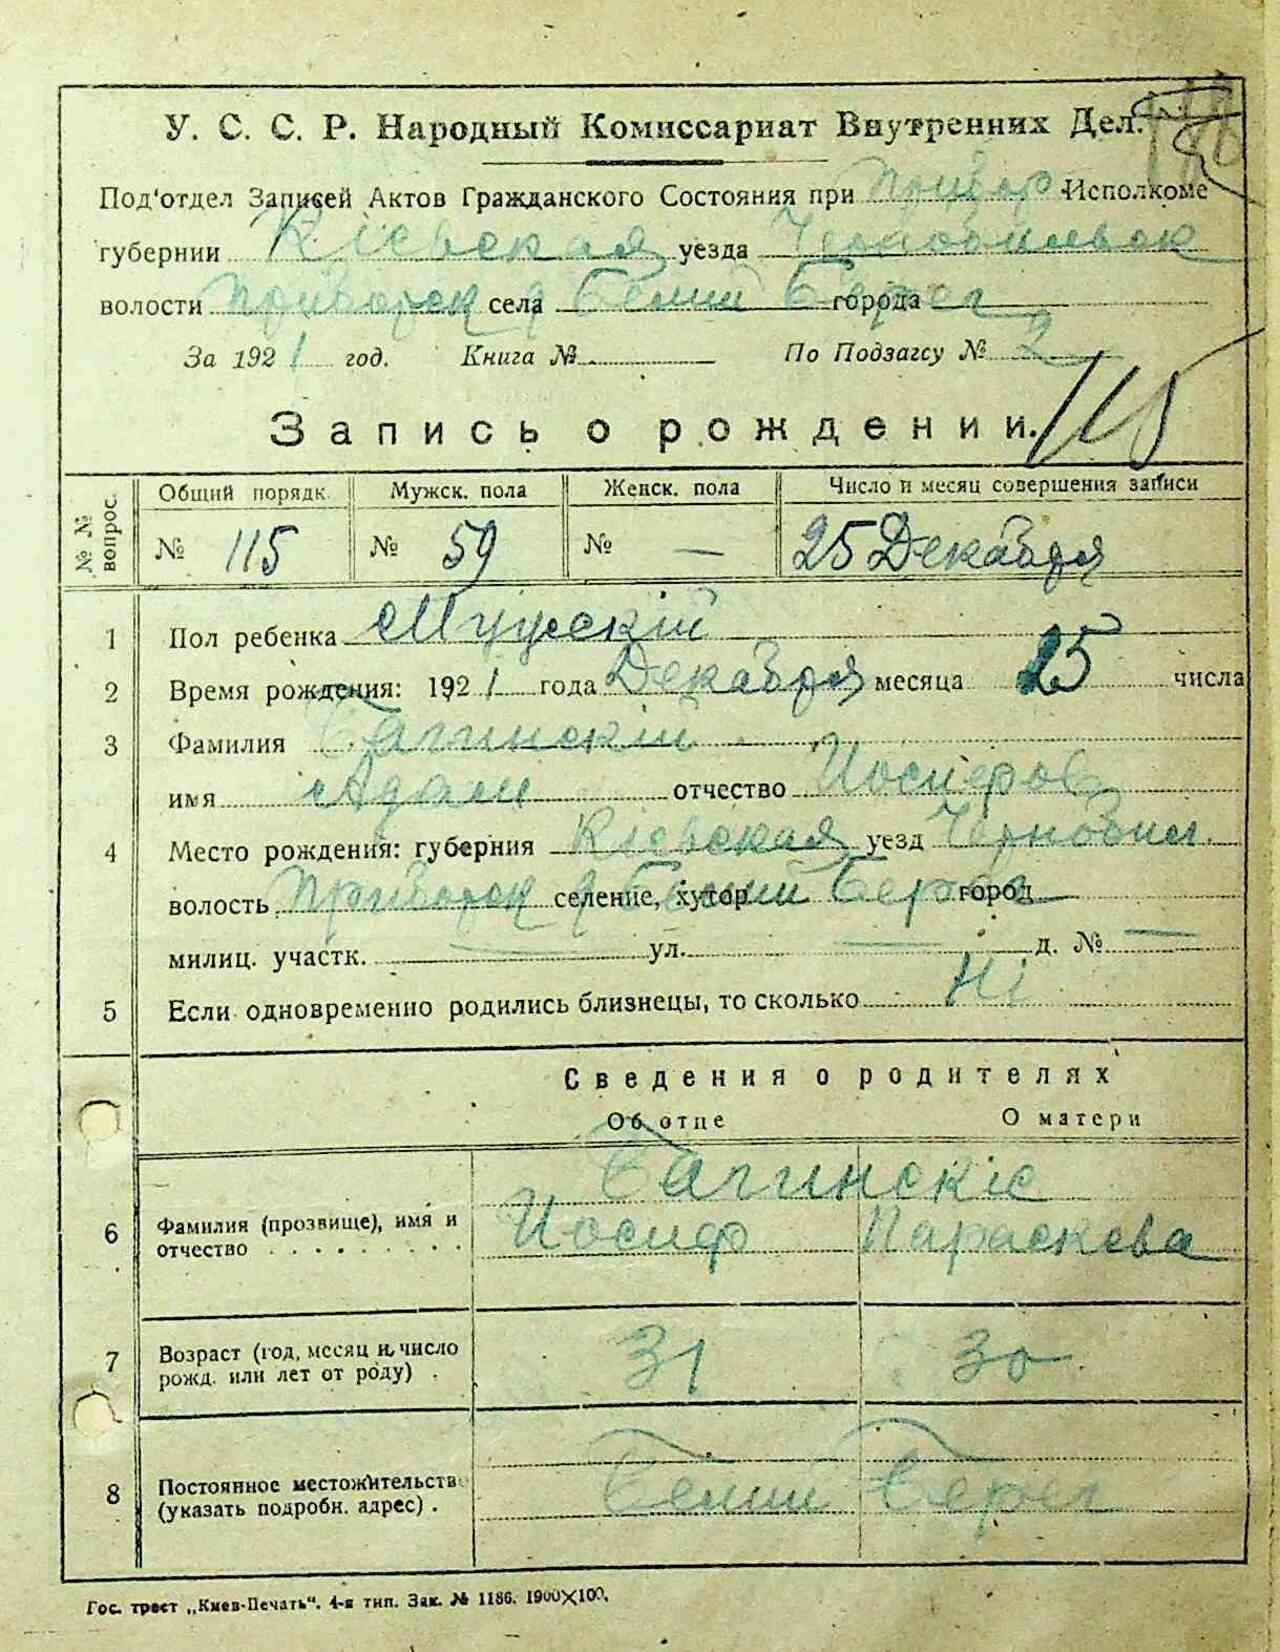 У. С. С. Р. Народный Комиссариат Внутренних Дел.
Под'отдел Записей Актов Гражданского Состояния при Прибор Исполкоме
губернии Кіевская уезда Чернобильск
волости Приборск села Белий Берег города
За 1921 год. Книга № По Подзагсу № 2
Запись о рождении. 115
№ № вопрос. Общий порядк. Мужск. пола Женск. пола Число и месяц совершения записи
№ 115 № 59 № — 25 Декабря
1 Пол ребенка Мужескій
2 Время рождения: 1921 года Декабря месяца 25 числа
3 Фамилия Багинскій
имя Адам отчество Иосифов
4 Место рождения: губерния Кіевская уезд Чернобил.
волость Приборск селение, хутор Белий Берег город
милиц. участк. — ул. — д. № —
5 Если одновременно родились близнецы, то сколько Ні
Сведения о родителях
Об отце О матери
Багинскіе
6 Фамилия (прозвище), имя и отчество Иосиф Параскева
7 Возраст (год, месяц и число рожд. или лет от роду) . 31 30
8 Постоянное местожительств (указать подробн. адрес) . Белий Берег
Гос. трест „Киев-Печать". 4-я тип. Зак. № 1186. 1900×100.